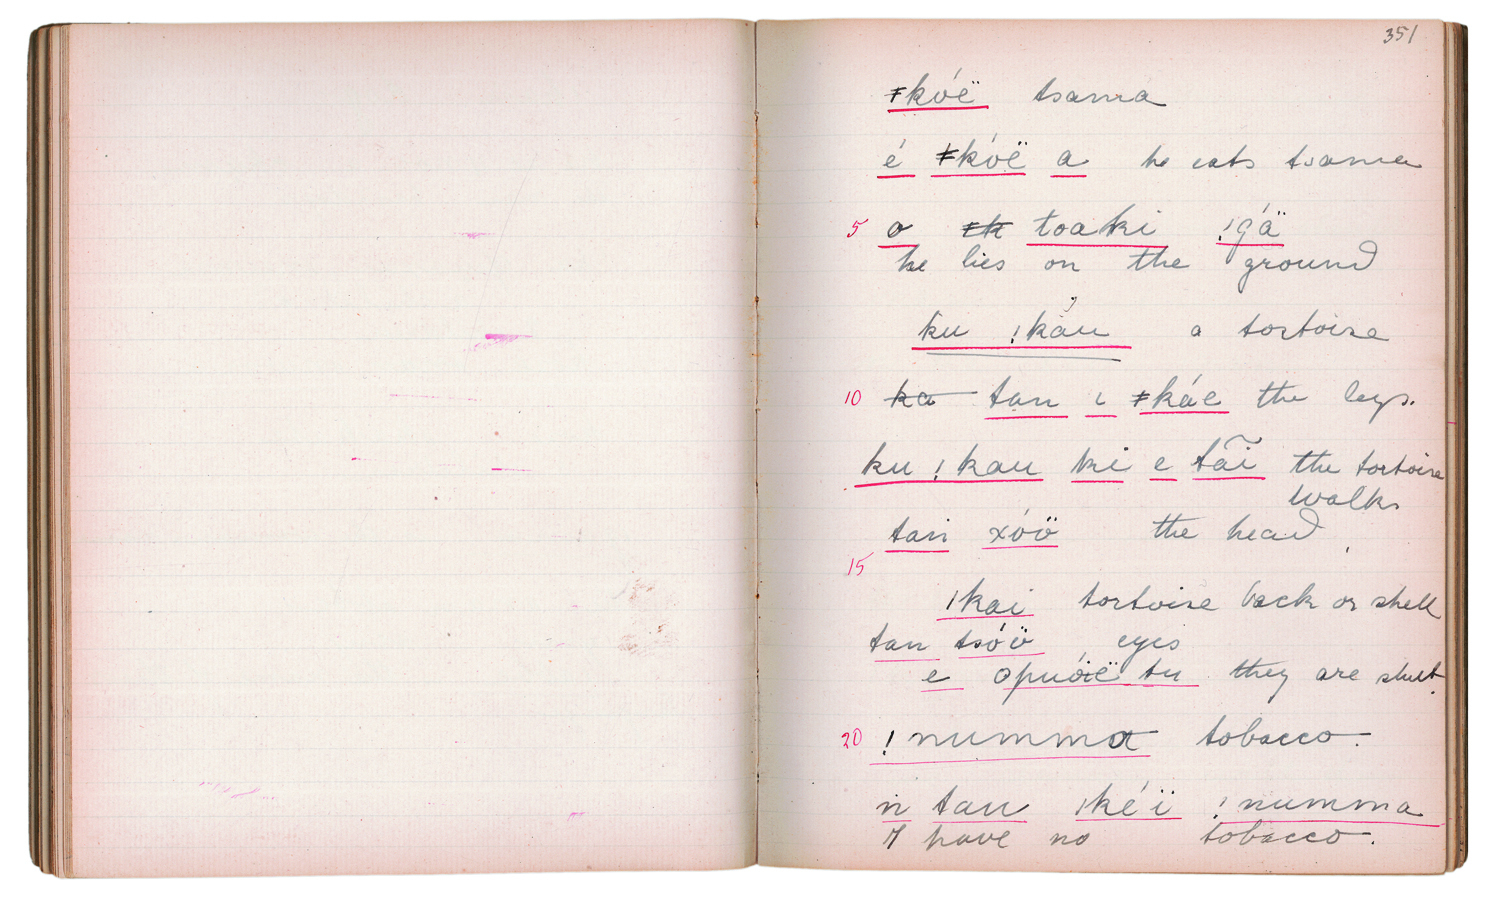 351
ǂkóë tsama
é ǂkóë a he eats tsama
5 o ǂk toaki !gä́
he lies on the ground
ku !kău a tortoise
10 ka tan i ǂkáe the legs.
ku !kau ki e tãi the tortoise
walks
tan xóö the head
15
ǀkai tortoise back or shell
tan tsóö eyes
e opuóië tu they are shut.
20 !numma tobacco.
n tan ǀkéï !numma
I have no tobacco.